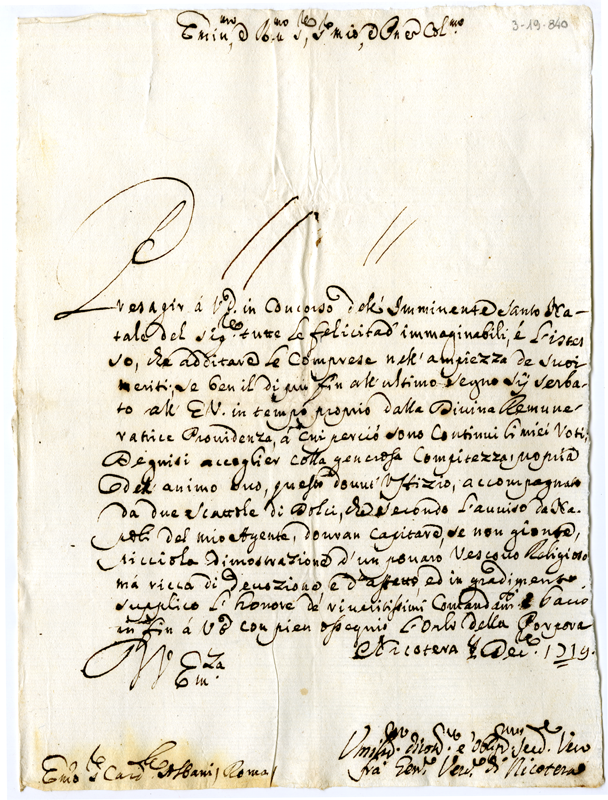 3-19-840
Emin.mo e R.mo Sig.re, Sig.re mio, e P.ne Col.mo
Presagir á V.E. in concorso dell' Imminente Santo Na-
tale del Sig.re tutte le felicitadi immaginabili, é l'istes-
so, che additarle comprese nell'ampiezza de suoi
meriti; se ben il di più fin all'ultimo segno sij serba-
to all' E.V. in tempo proprio dalla Divina Remune-
ratrice Providenza, á cui perciò sono continui li miei voti,
Degnisi accoglier colla generosa Compitezza, propria
dell'animo suo, questo dovut' Uffizio, accompagnato
da due scattole di Dolci, che secondo l'avviso da Na-
poli del mio Agente, dovran capitare, se non gionte,
picciola dimostrazione d'un povaro Vescovo Religioso
mà ricca di devozione e d'affetto, ed in gradimento
supplico l'honore de' riveritissimi Comandam.ti e bacio
in fin á V.E. con pien ossequio l'Orlo della Porpora
Nicotera Dec. 1719.
V.E.
Em.za
Umiliss.mo Divot.mo e Oblig.mo Serv.re Vero
fra Vesc.o di Nicotera
Em.o S.r Card.le Albani / Roma /